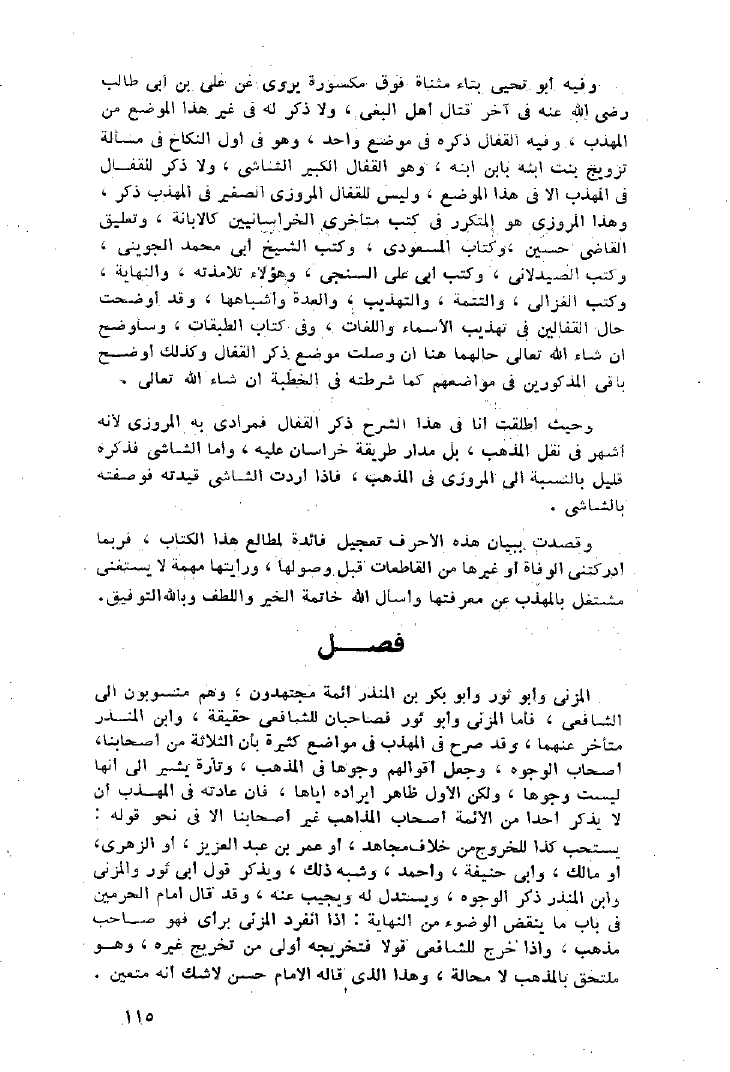 وفيه أبو تحيى بتاء مثناة فوق مكسورة يروى عن على بن أبى طالب
رضى الله عنه فى آخر قتال أهل البغى ، ولا ذكر له فى غير هذا الموضع من
المهذب ، وفيه القفال ذكره فى موضع واحد ، وهو فى أول النكاح فى مسألة
تزويج بنت ابنه بابن ابنه ، وهو القفال الكبير الشاشى ، ولا ذكر للقفــال
فى المهذب الا فى هذا الموضع ، وليس للقفال المروزى الصغير فى المهذب ذكر ،
وهذا المروزى هو المتكرر فى كتب متأخرى الخراسانيين كالابانة ، وتعليق
القاضى حسين ،وكتاب المسعودى ، وكتب الشيخ أبى محمد الجوينى ،
وكتب الصيدلانى ، وكتب أبى على السنجى ، وهؤلاء تلامذته ، والنهاية ،
وكتب الغزالى ، والتتمة ، والتهذيب ، والعدة وأشباهها ، وقد أوضحت
حال القفالين فى تهذيب الأسماء واللغات ، وفى كتاب الطبقات ، وسأوضح
ان شاء الله تعالى حالهما هنا ان وصلت موضع ذكر القفال وكذلك أوضــح
باقى المذكورين فى مواضعهم كما شرطته فى الخطبة ان شاء الله تعالى .
وحيث أطلقت أنا فى هذا الشرح ذكر القفال فمرادى به المروزى لأنه
أشهر فى نقل المذهب ، بل مدار طريقة خراسان عليه ، وأما الشاشى فذكره
قليل بالنسبة الى المروزى فى المذهب ، فاذا أردت الشاشى قيدته فوصفته
بالشاشى .
وقصدت ببيان هذه الأحرف تعجيل فائدة لمطالع هذا الكتاب ، فربما
أدركتنى الوفاة أو غيرها من القاطعات قبل وصولها ، ورأيتها مهمة لا يستغنى
مشتغل بالمهذب عن معرفتها وأسأل الله خاتمة الخير واللطف وبالله التوفيق.
فصــــل
المزنى وأبو ثور وأبو بكر بن المنذر أئمة مجتهدون ، وهم منسوبون الى
الشافعى ، فأما المزنى وأبو ثور فصاحبان للشافعى حقيقة ، وابن المنــذر
متأخر عنهما ، وقد صرح فى المهذب فى مواضع كثيرة بأن الثلاثة من أصحابنا،
أصحاب الوجوه ، وجعل أقوالهم وجوها فى المذهب ، وتارة يشير الى أنها
ليست وجوها ، ولكن الأول ظاهر ايراده اياها ، فان عادته فى المهــذب أن
لا يذكر أحدا من الأئمة أصحاب المذاهب غير أصحابنا الا فى نحو قوله :
يستحب كذا للخروج من خلاف مجاهد ، أو عمر بن عبد العزيز ، أو الزهرى،
أو مالك ، وأبى حنيفة ، وأحمد ، وشبه ذلك ، ويذكر قول أبى ثور والمزنى
وابن المنذر ذكر الوجوه ، ويستدل له ويجيب عنه ، وقد قال امام الحرمين
فى باب ما ينقض الوضوء من النهاية : اذا انفرد المزنى برأى فهو صــاحب
مذهب ، واذا خرج للشافعى قولا فتخريجه أولى من تخريج غيره ، وهــو
ملتحق بالمذهب لا محالة ، وهذا الذى قاله الامام حسن لاشك أنه متعين .
١١٥